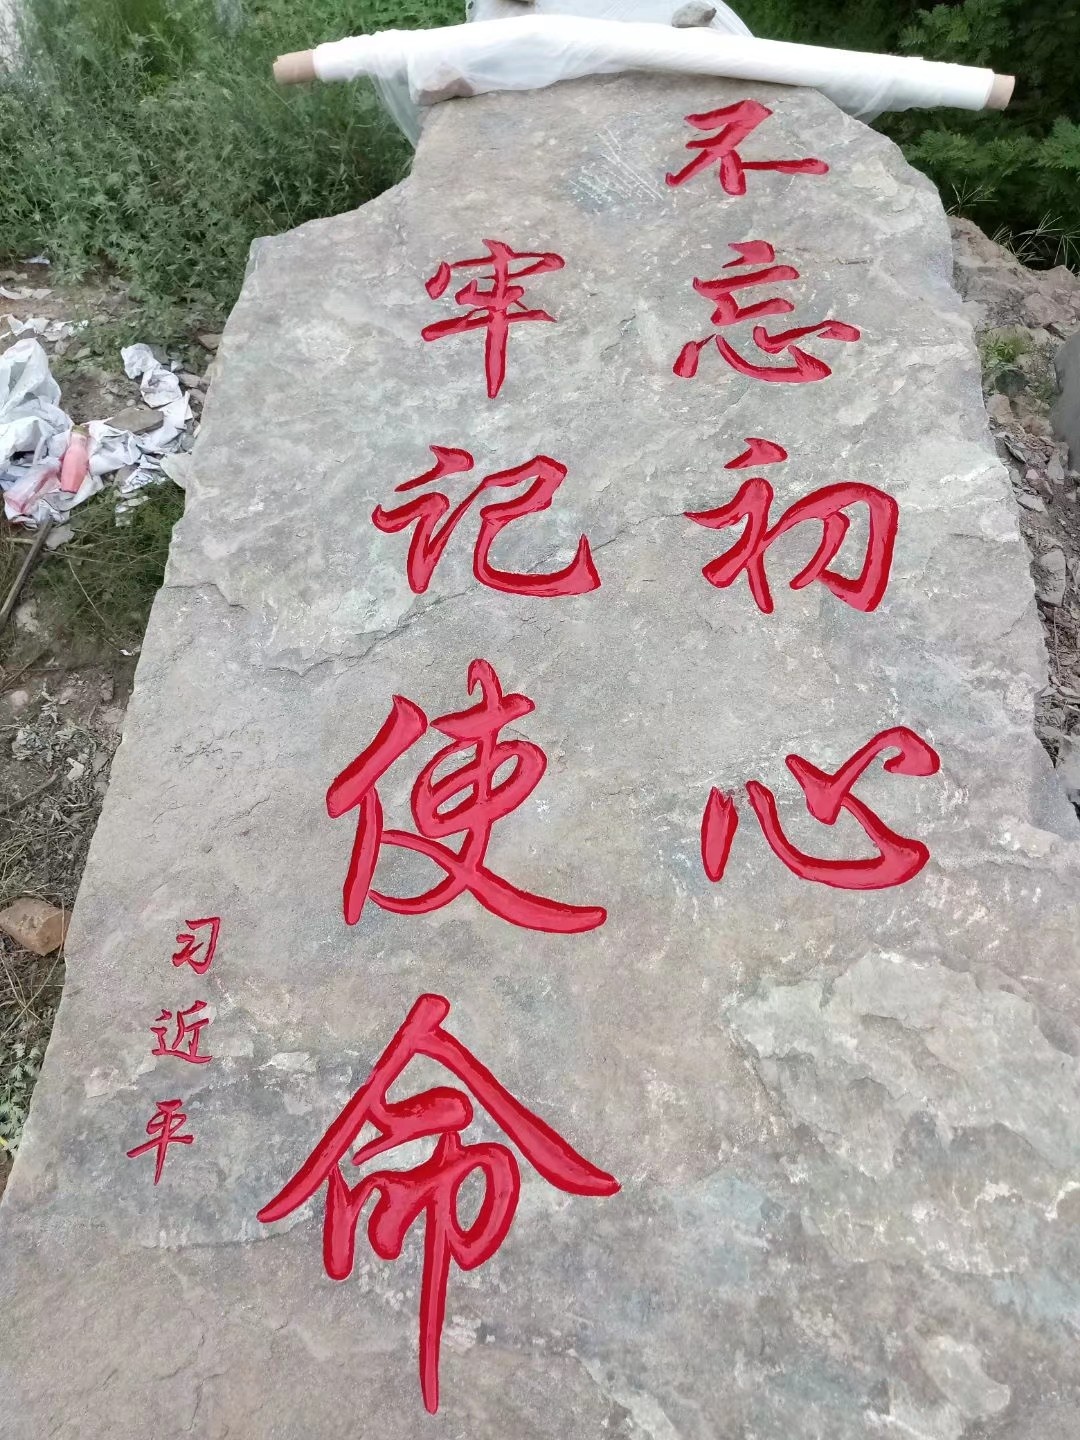 不忘初心
牢记使命
习近平